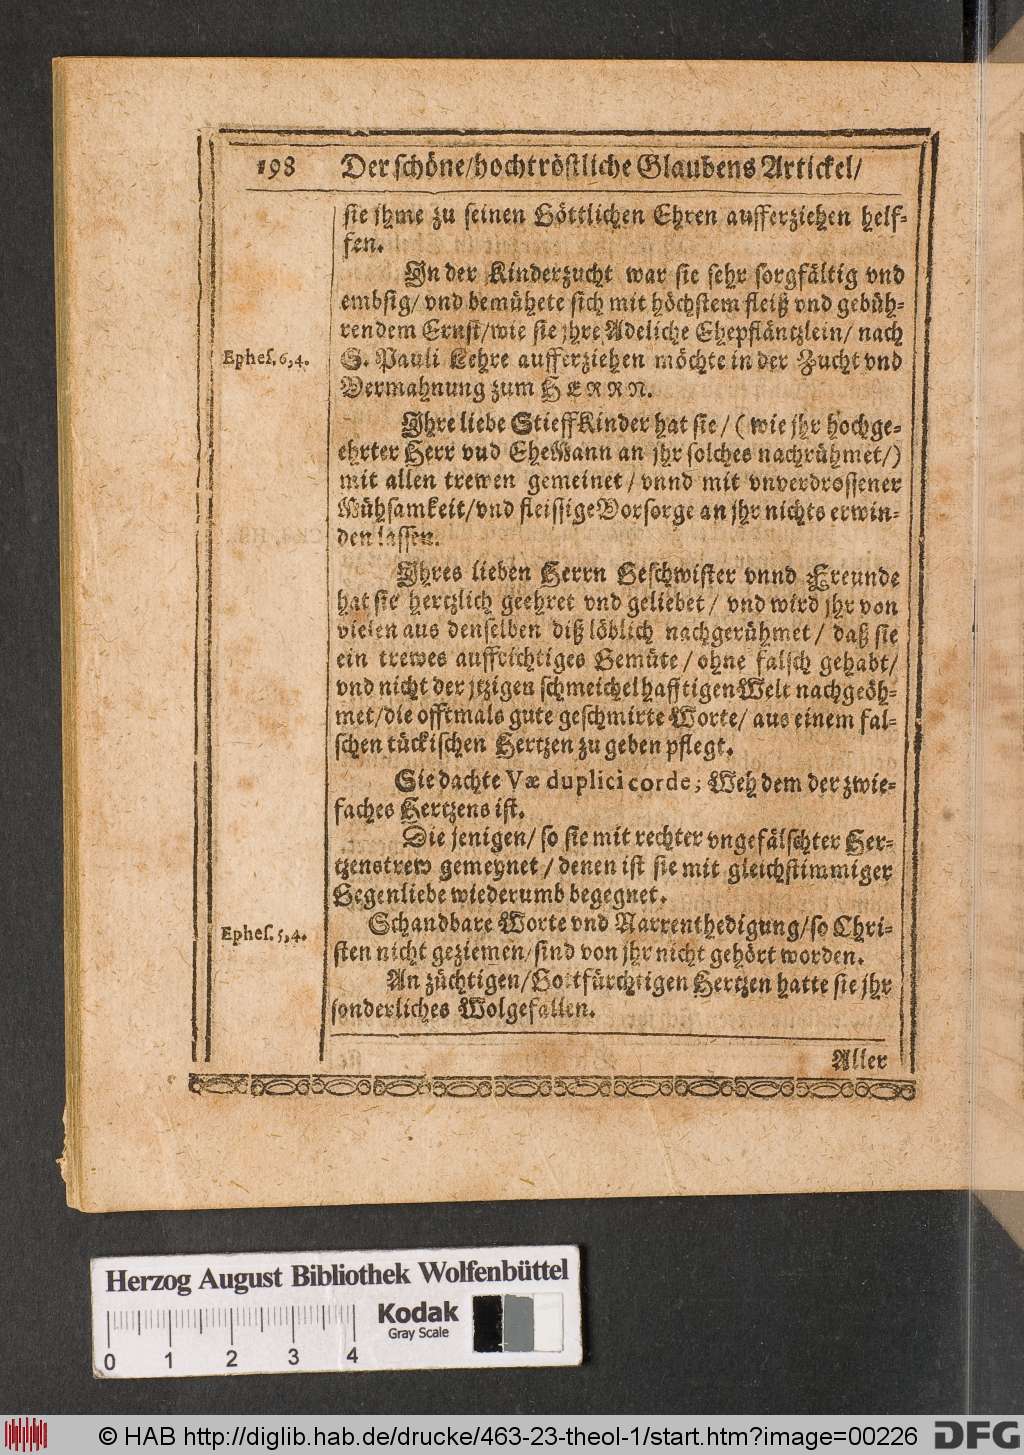 198 Der schöne/hochtröstliche Glaubens Artickel/
sie jhme zu seinen Göttlichen Ehren aufferziehen helf-
fen.
In der Kinderzucht war sie sehr sorgfältig vnd
embsig/ vnd bemühete sich mit höchstem fleiß vnd gebüh-
rendem Ernst/wie sie jhre Adeliche Ehepfläntzlein/ nach
Ephes. 6,4.
S. Pauli Lehre aufferziehen möchte in der Zucht vnd
Vermahnung zum HERRN.
Ihre liebe StieffKinder hat sie/ (wie jhr hochge-
ehrter Herr vud EheMann an jhr solches nachrühmet/)
mit allen trewen gemeinet/ vnnd mit vnverdrossener
Mühsamkeit/vnd fleissige Vorsorge an jhr nichts erwin-
den lassen.
Ihres lieben Herrn Geschwister vnnd Freunde
hat sie hertzlich geehret vnd geliebet/ vnd wird jhr von
vielen aus denselben diß löblich nachgerühmet/ daß sie
ein trewes auffrichtiges Gemüte/ohne falsch gehabt/
vnd nicht der jtzigen schmeichelhafftigen Welt nachgeöh-
met/die offtmals gute geschmirte Worte/ aus einem fal-
schen tückischen Hertzen zu geben pflegt.
Sie dachte Væ duplici corde, Weh dem der zwie-
faches Hertzens ist.
Die jenigen/ so sie mit rechter vngefälschter Her-
tzenstrew gemeynet/denen ist sie mit gleichstimmiger
Gegenliebe wiederumb begegnet.
Ephes. 5,4.
Schandbare Worte vnd Narrenthedigung/so Chri-
sten nicht geziemen/sind von jhr nicht gehört worden.
An züchtigen/Gottfürchtigen Hertzen hatte sie jhr
sonderliches Wolgefallen.
Aller
Herzog August Bibliothek Wolfenbüttel
Kodak
Gray Scale
0 1 2 3 4
© HAB http://diglib.hab.de/drucke/463-23-theol-1/start.htm?image=00226
DFG